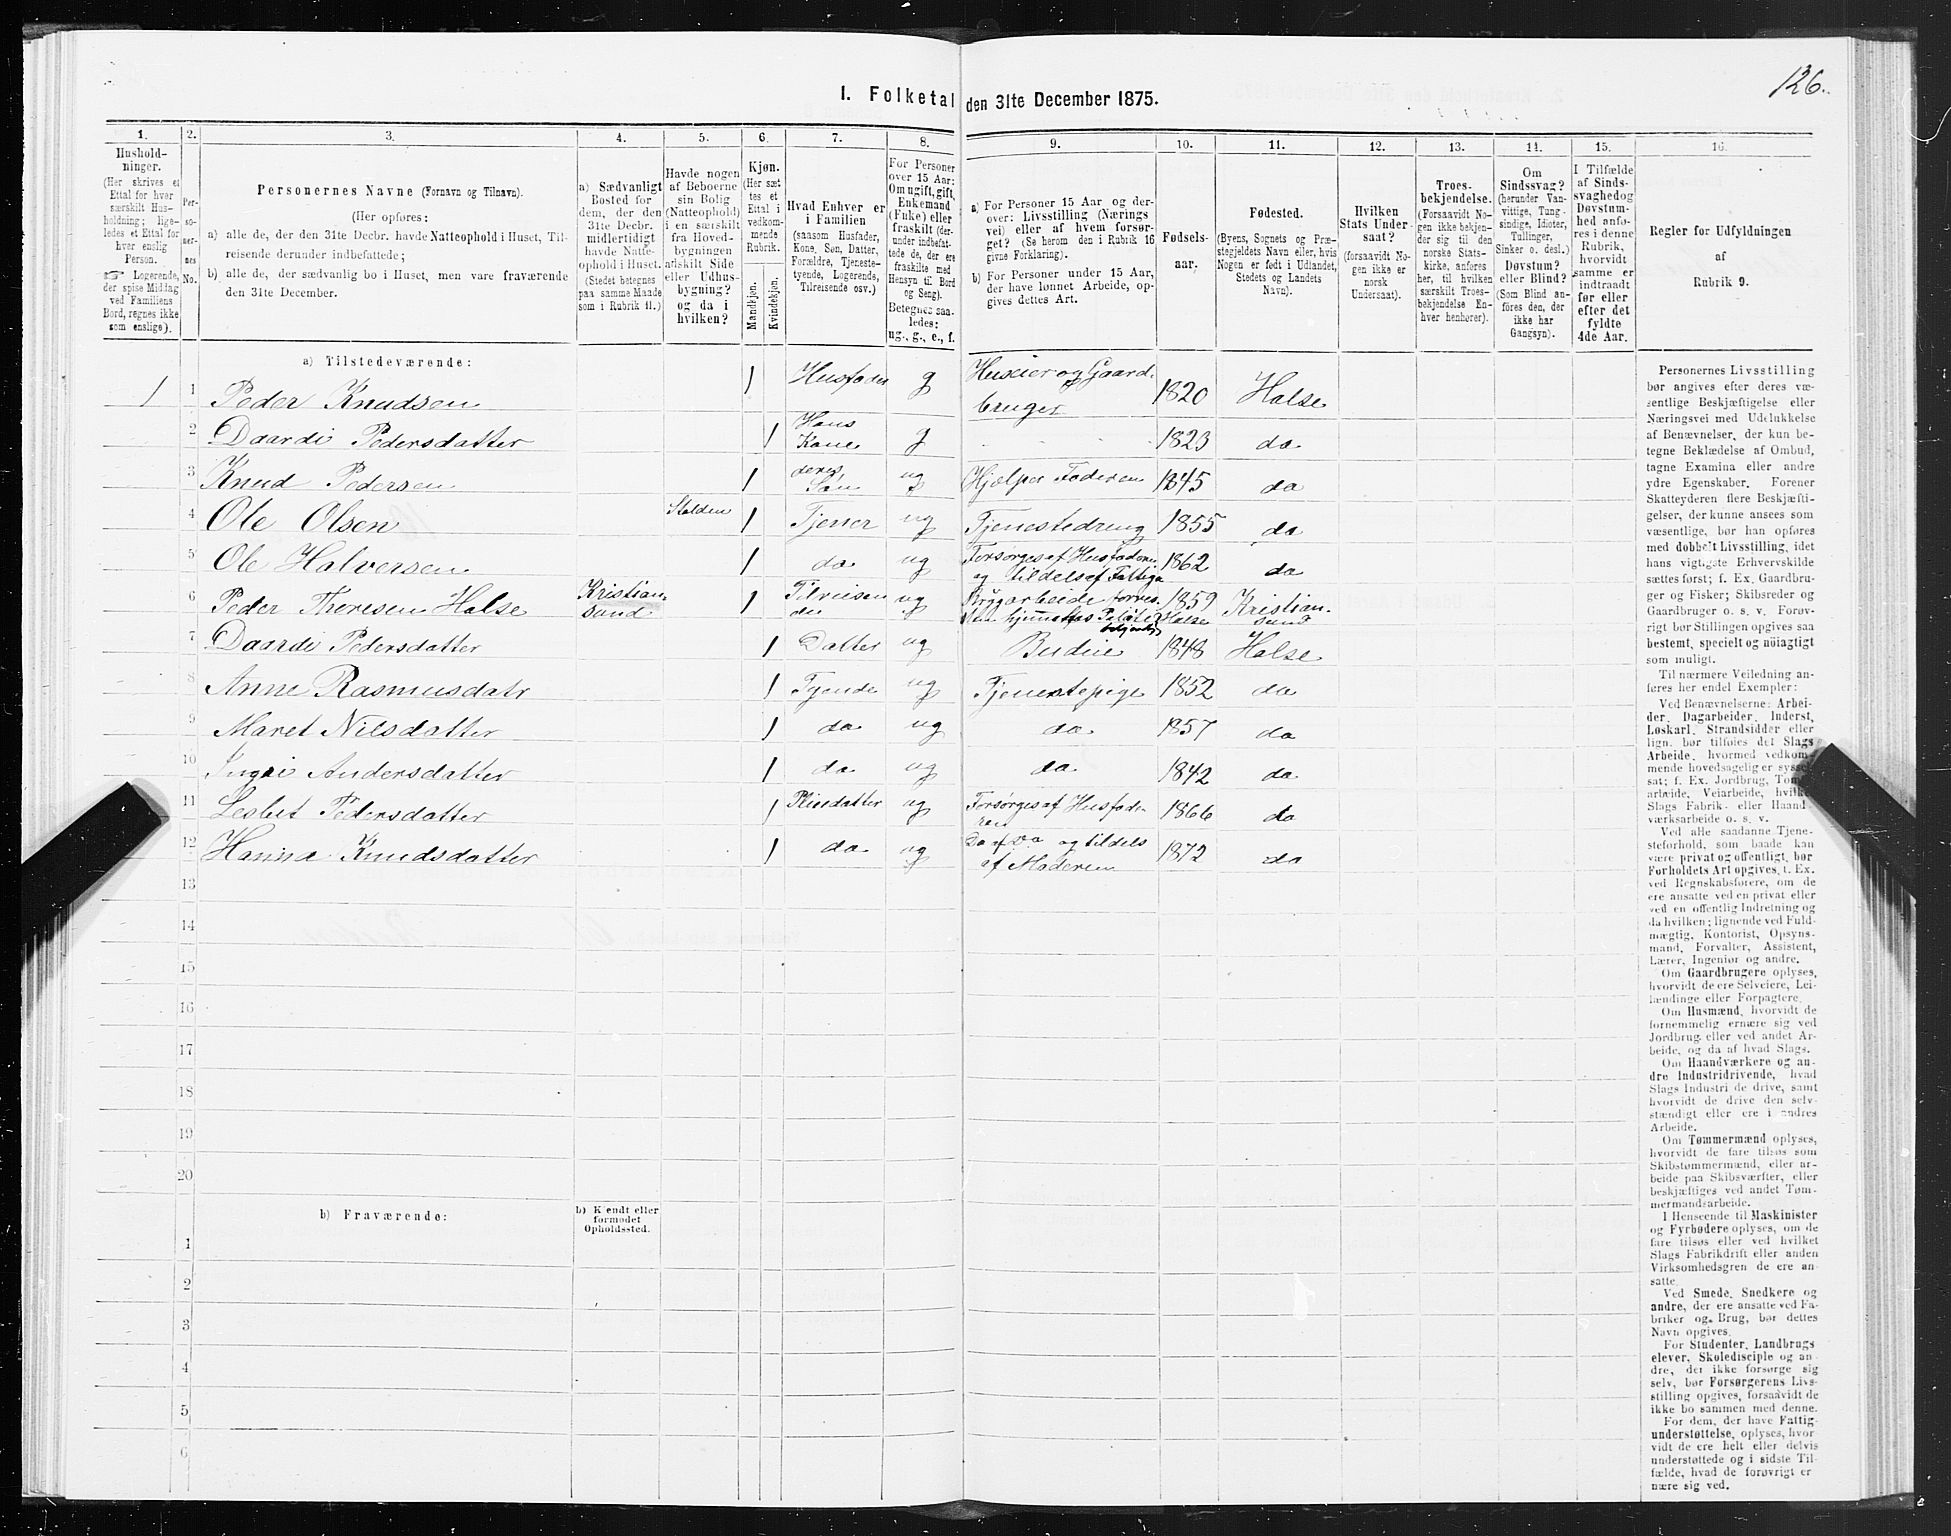 126.
I. Folketal den 31te December 1875.
1. 2. 3. 4. 5. 6. 7. 8. 9. 10. 11. 12. 13. 14. 15. 16.
Hushold-
ninger.
(Her skrives et
Ettal for hver
særskilt Hus-
holdning; lige-
ledes et Ettal for
hver enslig
Person.
☞ Logerende,
der spise Middag
ved Familiens
Bord, regnes ikke
som enslige).
Per-
so-
ner-
nes
No.
Personernes Navne (Fornavn og Tilnavn).
(Her opføres:
a) alle de, der den 31te Decbr. havde Natteophold i Huset, Til-
reisende derunder indbefattede;
b) alle de, der sædvanlig bo i Huset, men vare fraværende
den 31te December.
a) Sædvanligt
Bosted for
dem, der den
31te Decbr.
midlertidigt
havde Natte-
ophold i Huset.
(Stedet betegnes
paa samme Maade
som i Rubrik 11.)
Havde nogen
af Beboerne
sin Bolig
(Natteophold)
i en særskilt
fra Hoved-
bygningen
afskilt Side
eller Udhus-
bygning?
og da i
hvilken?
Kjøn.
(Her sæt
tes et
Ettal i
vedkom-
mende
Rubrik.
Mandkjøn.
Kvindekjøn.
Hvad Enhver er
i Familien
(saasom Husfader,
Kone, Søn, Datter,
Forældre, Tjeneste-
tyende, Logerende,
Tilreisende osv.)
For Personer
over 15 Aar:
Om ugift, gift,
Enkemand
(Enke) eller
fraskilt (der-
under indbefat-
tede de, der ere
fraskilte med
Hensyn til Bord
og Seng).
Betegnes saa-
ledes:
ug., g., e., f.
a) For Personer 15 Aar og der-
over: Livsstilling (Nærings
vei) eller af hvem forsør-
get? (Se herom den i Rubrik 16
givne Forklaring).
b) For Personer under 15 Aar,
der have lønnet Arbeide, op-
gives dettes Art.
Fødsels-
aar.
Fødested.
(Byens, Sognets og Præ-
stegjeldets Navn eller, hvis
Nogen er født i Udlandet,
Stedets og Landets
Navn).
Hvilken
Stats Under
saat?
(forsaavidt No-
gen ikke er
norsk
Undersaat).
Troes-
bekjendelse.
(Forsaavidt No-
gen ikke bekjen-
der sig til den
norske Stats-
kirke, anføres
her, til hvilken
særskilt Troes-
bekjendelse En-
hver henhører).
Om
Sindssvag?
(herunder Van-
vittige, Tung-
sindige, Idioter,
Tullinger,
Sinker o. desl.)
Døvstum?
eller Blind?
(Som Blind an-
føres den, der
ikke har
Gangsyn).
I Tilfælde
af Sinds-
svaghed og
Døvstum-
hed anfø-
res i denne
Rubrik,
hvorvidt
samme er
indtraadt
før eller
efter det
fyldte
4de Aar.
Regler for Udfyldningen
af
Rubrik 9.
a) Tilstedeværende:
1 1 Peder Knudsen 1 Husfader g Huseier og Gaard-
bruger 1820 Halse
2 Daardi Pedersdatter 1 Hans
Kone g 1823 do
3 Knud Pedersen 1 deres
Søn ug Hjælper Faderen 1845 do
4 Ole Olsen Stalden 1 Tjener ug Tjenestedreng 1855 do
5 Ole Halversen 1 do ug Forsørges af Husfaderen
og tildels af Fattigv 1862 do
6 Peder Theresen Halse Kristian
sund 1 Tilreisen
de ug 1859 Kristian-
sund
7 Daardi Pedersdatter 1 Datter ug Budeie 1848 Halse
8 Anne Rasmusdatr 1 Tyende ug Tjenestepige 1852 do
9 Maret Nilsdatter 1 do ug do 1857 do
10 Ingri Andersdatter 1 do ug do 1842 do
11 Lesbet Pedersdatter 1 Pleiedatter ug Forsørges af Husfade-
ren 1866 do
12 Hanna Knudsdatter 1 do ug Do af Do og tildels
af Moderen 1872 do
13
14
15
16
17
18
19
20
b) Fraværende:
b) Kjendt eller
formodet
Opholdssted.
1
2
3
4
5
6
Personernes Livsstilling
bør angives efter deres væ-
sentlige Beskjæftigelse eller
Næringsvei med Udelukkelse
af Benævnelser, der kun be-
tegne Beklædelse af Ombud,
tagne Examina eller andre
ydre Egenskaber. Forener
Skatteyderen flere Beskjæfti-
gelser, der kunne ansees som
væsentlige, bør han opføres
med dobbelt Livsstilling, idet
hans vigtigste Erhvervskilde
sættes først; f. Ex. Gaardbru-
ger og Fisker; Skibsreder og
Gaardbruger o. s. v. Forøv-
rigt bør Stillingen opgives saa
bestemt, specielt og nøiagtigt
som muligt.
Til nærmere Veiledning an-
føres her endel Exempler:
Ved Benævnelserne: Arbei-
der, Dagarbeider, Inderst,
Løskarl, Strandsidder eller
lign. bør tilføies det Slags
Arbeide, hvormed vedkom-
mende hovedsagelig er syssel
sat; f. Ex. Jordbrug, Tom
arbeide, Veiarbeide, hvilke
Slags Fabrik- eller Haand-
værksarbeide o. s. v.
Ved alle saadanne Tjene-
steforhold, som baade kan
være privat og offentligt, bør
Forholdets Art opgives, t. Ex.
ved Regnskabsførere, om de
ere ansatte ved en privat eller
ved en offentlig Indretning og
da hvilken; lignende ved Fuld-
mægtig, Kontorist, Opsyns-
mand, Forvalter, Assistent,
Lærer, Ingeniør og andre.
Om Gaardbrugere oplyses,
hvorvidt de ere Selveiere, Lei-
lændinge eller Forpagtere.
Om Husmænd, hvorvidt de
fornemmelig ernære sig ved
Jordbrug eller ved andet Ar-
beide, og da af hvad Slags.
Om Haandværkere og an-
dre Industridrivende, hvad
Slags Industri de drive, samt
hvorvidt de drive den selv-
stændigt eller ere i andres
Arbeide.
Om Tømmermænd oplyses,
hvorvidt de fare tilsøs som
Skibstømmermænd, eller ar-
beide paa Skibsværfter, eller
beskjæftiges ved andet Tøm-
mermandsarbeide.
I Henseende til Maskinister
og Fyrbødere oplyses, om de
fare tilsøs eller ved hvilket
Slags Fabrikdrift eller anden
Virksomhedsgren de ere an-
satte.
Ved Smede, Snedkere og
andre, der ere ansatte ved Fa-
briker og Brug, bør dettes
Navn opgives.
For Studenter, Landbrugs
elever, Skoledisciple og an-
dre, der ikke forsørge sig
selv, bør Forsørgerens Livs-
stilling opgives, forsaavidt de
ikke bo sammen med denne.
For dem, der have Fattig-
understøttelse, oplyses, hvor-
vidt de ere helt eller delvis
understøttede og i sidste Til-
fælde, hvad de forøvrigt er
nære sig ved.